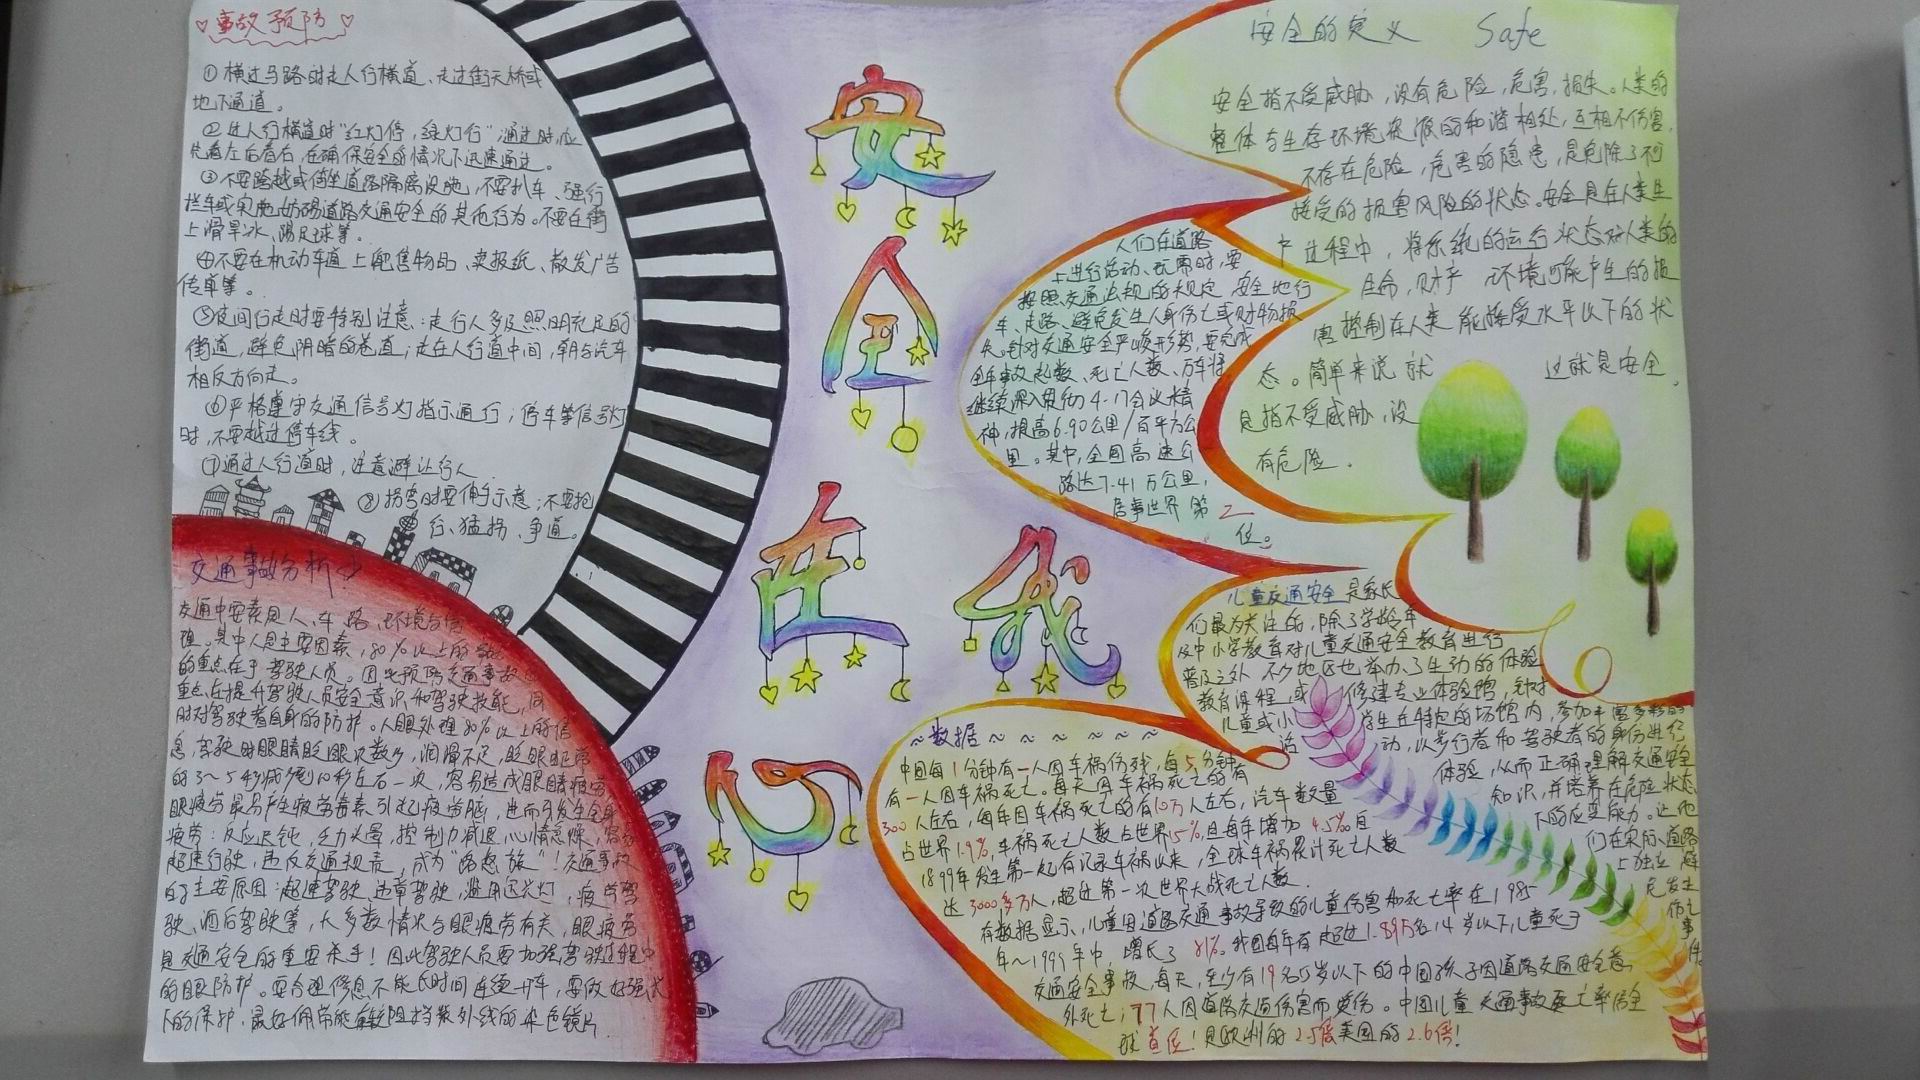 事故预防
①横过马路时走人行横道、走过街天桥或
地下通道。
②过人行横道时"红灯停，绿灯行"，通过时应
先看左后看右，在确保安全的情况下迅速通过。
③不要跨越或倚坐道路隔离设施，不要扒车、强行
拦车或实施妨碍道路交通安全的其他行为。不要在街
上滑旱冰、踢足球等。
④不要在机动车道上兜售物品、卖报纸、散发广告
传单等。
⑤夜间行走时要特别注意：走行人多及照明充足的
街道，避免阴暗的巷道；走在人行道中间，朝与汽车
相反方向走。
⑥严格遵守交通信号灯指示通行；停车等信号灯
时，不要越过停车线。
⑦通过人行道时，注意避让行人
⑧拐弯时要伸手示意；不要抢
行、猛拐、争道。
交通事故分析
交通中要素是人、车、路、环境与管
理。其中人是主要因素，80%以上的
的重点在于驾驶人员。因此预防交通事故
重点在提升驾驶人员安全意识和驾驶技能，同
时对驾驶者自身的防护。人眼处理80%以上的信
息，驾驶时眼睛眨眼次数少，润滑不足，眨眼由正常
的3～5秒减少到10秒左右一次，容易造成眼睛疲劳
眼疲劳最易产生疲劳毒素引起疲劳脏，进而引发生全身
疲劳：反应迟钝，乏力头晕，控制力减退，心情急燥，容易
超速行驶，违反交通规责，成为"路怒族"！交通事故
的主要原因：超速驾驶、违章驾驶，滥用远光灯，疲劳驾
驶、酒后驾驶等，大多数情况与眼疲劳有关，眼疲劳
是交通安全的重要杀手！因此驾驶人员要加强驾驶过程中
的眼防护。要合理修息不能长时间连续开车，要做好强光
下的保护，最好佩带能有效阻挡紫外线的染色镜片
安
全
在我
心
安全的定义 Safe
安全指不受威胁，没有危险，危害，损失。人类的
整体与生存环境资源的和谐相处，互相不伤害，
不存在危险，危害的隐患，是免除了不可
接受的损害风险的状态。安全是在人类生
产过程中，将系统的运行状态对人类的
生命，财产 环境可能产生的损
害控制在人类能接受水平以下的状
态。简单来说就
是指不受威胁，没
有危险。
这就是安全。
人们在道路
上进行活动、玩需时，要
按照交通法规的规定，安全地行
车、走路，避免发生人身伤亡或财物损
失。针对交通安全严峻形势，要完成
全年事故起数、死亡人数、万车将
继续深入贯彻4.17会议精
神，提高6.90公里/百平方公
里。其中，全国高速公
路达7.41万公里，
居事世界第二
位。
儿童交通安全是家长
们最为关注的，除了学龄车
及中小学教育对儿童交通安全教育进行
普及之外 不少地区也举办了生动的体验
教育课程，或 修建专业体验馆，针对
儿童或小 学生在特定的场馆内，参加丰富多彩的
活 动，以步行者和驾驶者的身份进行
体验，从而正确理解交通安全
知识，并培养在危险状态
下的应变能力。让他
们在实际道路
上独立 避
免发生
伤亡
事
件
～数据～～～～～～
中国每1分钟有一人因车祸伤残，每5分钟有
有一人因车祸死亡。每天因车祸死亡的有
300人左右，每年因车祸死亡的有10万人左右，汽车数量
占世界1.9%，车祸死亡人数占世界15%，且每年增加4.5%。自
1899年发生第一起有记录车祸以来，全球车祸累计死亡人数
达3000多万人，超过第一次世界大战死亡人数。
有数据显示，儿童因道路交通事故导致的儿童伤害和死亡率在1985
年～1995年中，增长了81%。我国每年有超过1.85万名14岁以下儿童死于
交通安全事故，每天，至少有19名15岁以下的中国孩子因道路交通安全意
外死亡；77人因道路交通伤害而受伤。中国儿童交通事故死亡率居全
球首位！是欧洲的2.5倍美国的2.6倍！